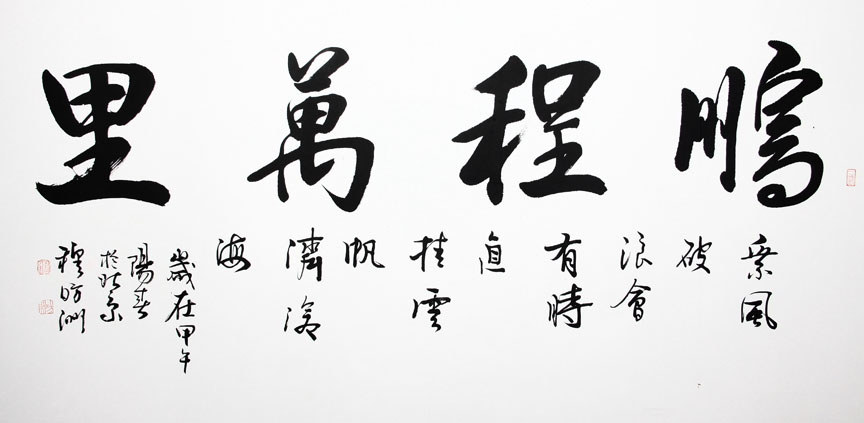 鵬程萬里
乘風
破
浪會
有時
直
挂雲
帆
濟滄
海
歲在甲午
陽春
於北京
穆昉洲